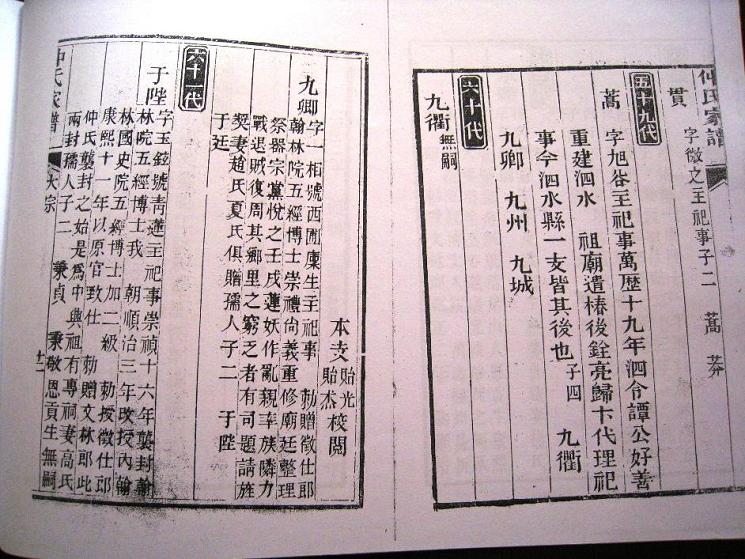 仲氏家譜
貫 字徵之主祀事子二 蒿 莽
五十九代
蒿 字旭峪主祀事萬歷十九年泗令譚公好善
重建泗水 祖廟遣椿後銓亮歸卞代理祀
事今泗水縣一支皆其後也 子四 九衢
九卿 九州 九城
六十代
九衢 無嗣
本支 貽光 貽杰 校閱
九卿 字一相號西圃廩生主祀事 勅贈徵仕郎
翰林院五經博士崇禮尚義重修廟廷整理
祭器宗黨悅之壬戌蓮妖作亂親率族隣力
戰退賊復周其鄉里之窮乏者有司題請旌
契妻趙氏夏氏俱贈孺人子二 于陛
于廷
六十一代
于陛 字玉鉉號靑蓮主祀事崇禎十六年襲封翰
林院五經博士我 朝順治三年改授內翰
林國史院五經博士加二級 勅授徵仕郎
康熙十一年以原官致仕 勅贈文林郎此
仲氏襲封之始是爲中興祖有專祠妻高氏
兩封孺人子二 秉貞 秉敬恩貢生無嗣
仲氏家譜 大宗